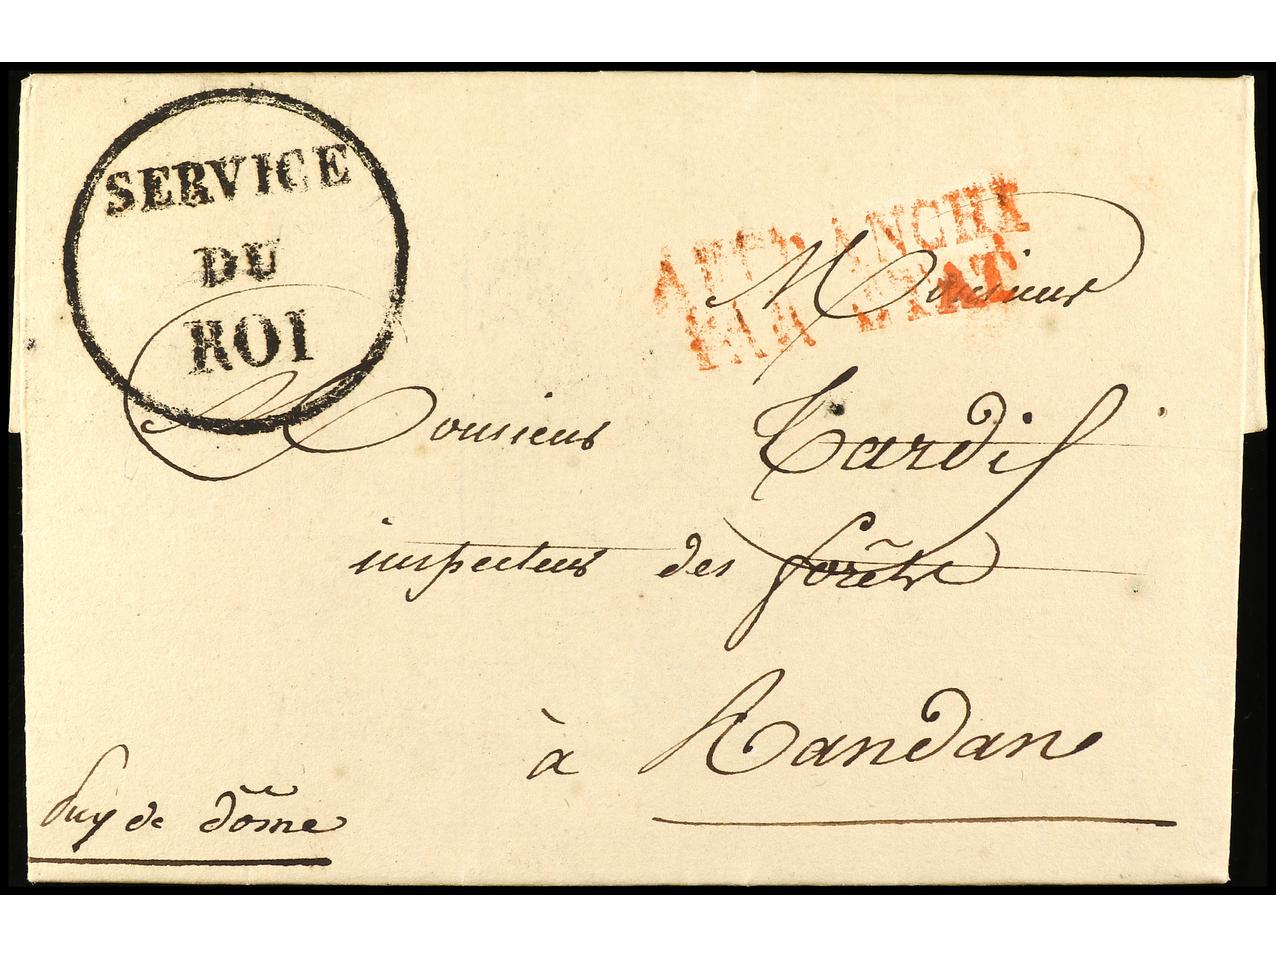 SERVICE
DU
ROI
AFFRANCHI
PAR ETAT
Monsieur
Monsieur Tardif
inspecteur des forêts
à Randan
puy de dôme